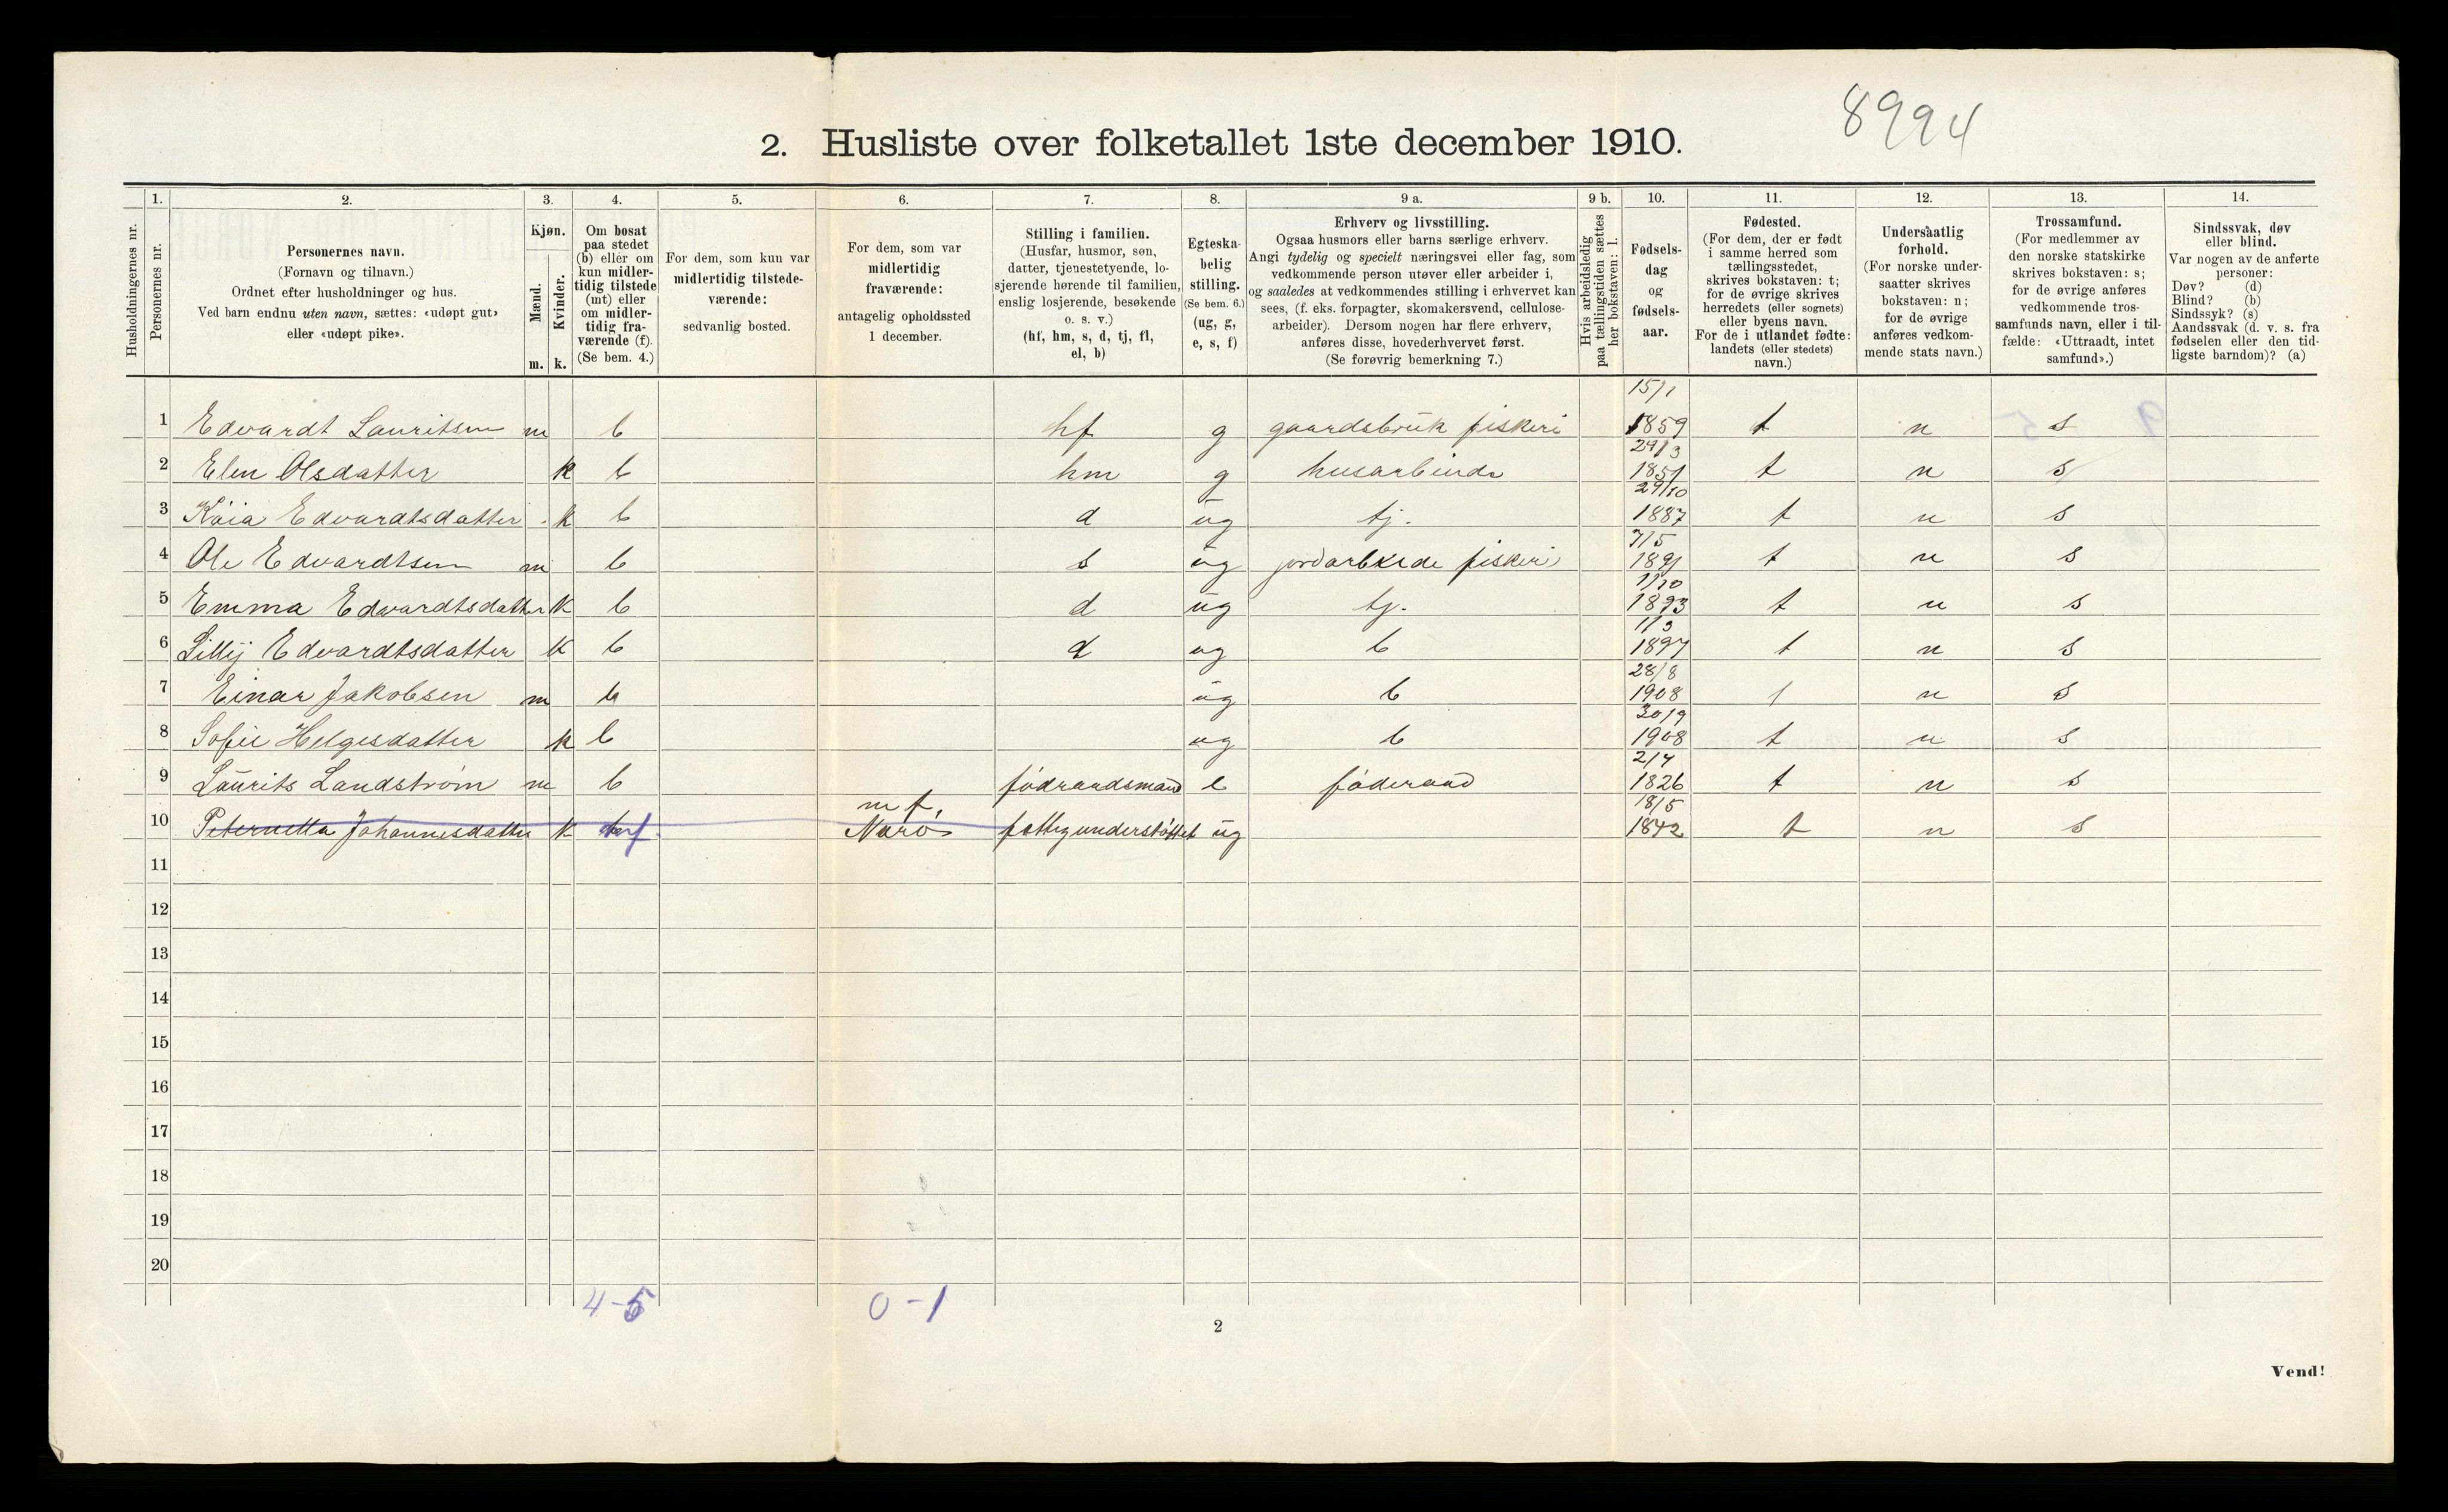 8994
2. Husliste over folketallet 1ste december 1910.
Husholdningernes nr.
1.
Personernes nr.
2.
Personernes navn.
(Fornavn og tilnavn.)
Ordnet efter husholdninger og hus.
Ved barn endnu uten navn, sættes: «udøpt gut»
eller «udøpt pike».
3.
Kjøn.
Mænd.
m.
Kvinder.
k.
4.
Om bosat
paa stedet
(b) eller om
kun midler-
tidig tilstede
(mt) eller
om midler-
tidig fra-
værende (f).
(Se bem. 4.)
5.
For dem, som kun var
midlertidig tilstede-
værende:
sedvanlig bosted.
6.
For dem, som var
midlertidig
fraværende:
antagelig opholdssted
1 december.
7.
Stilling i familien.
(Husfar, husmor, søn,
datter, tjenestetyende, lo-
sjerende hørende til familien,
enslig losjerende, besøkende
o. s. v.)
(hf, hm, s, d, tj, fl,
el, b)
8.
Egteska-
belig
stilling.
(Se bem. 6.)
(ug, g,
e, s, f)
9 a.
Erhverv og livsstilling.
Ogsaa husmors eller barns særlige erhverv.
Angi tydelig og specielt næringsvei eller fag, som
vedkommende person utøver eller arbeider i,
og saaledes at vedkommendes stilling i erhvervet kan
sees, (f. eks. forpagter, skomakersvend, cellulose-
arbeider). Dersom nogen har flere erhverv,
anføres disse, hovederhvervet først.
(Se forøvrig bemerkning 7.)
9 b.
Hvis arbeidsledig
paa tællingstiden sættes
her bokstaven: l.
10.
Fødsels-
dag
og
fødsels-
aar.
11.
Fødested.
(For dem, der er født
i samme herred som
tællingsstedet,
skrives bokstaven: t;
for de øvrige skrives
herredets (eller sognets)
eller byens navn.
For de i utlandet fødte:
landets (eller stedets)
navn.)
12.
Undersaatlig
forhold.
(For norske under-
saatter skrives
bokstaven: n;
for de øvrige
anføres vedkom-
mende stats navn.)
13.
Trossamfund.
(For medlemmer av
den norske statskirke
skrives bokstaven: s;
for de øvrige anføres
vedkommende tros-
samfunds navn, eller i til-
fælde: «Uttraadt, intet
samfund».)
14.
Sindssvak, døv
eller blind.
Var nogen av de anførte
personer:
Døv? (d)
Blind? (b)
Sindssyk? (s)
Aandssvak (d. v. s. fra
fødselen eller den tid-
ligste barndom)? (a)
1 Edvardt Lauritsen m b hf g gaardsbruk fiskeri 15/1 1859 t n s
2 Elen Olsdatter k b hm g husarbeide 29/3 1851 t n s
3 Kaia Edvardtsdatter k b d ug tj. 29/10 1887 t n s
4 Ole Edvardtsen m b s ug jordarbeide fiskeri 7/5 1891 t n s
5 Emma Edvardtsdatter k b d ug tj. 1/10 1893 t n s
6 Lillij Edvardtsdatter k b d ug b 1/3 1897 t n s
7 Einar Jakobsen m b ug b 28/8 1908 t n s
8 Sofie Helgesdatter k b ug b 30/9 1908 t n s
9 Laurits Landstrøm m b fødraadsmand e føderaad 2/7 1826 t n s
10 Peternella Johannesdatter k f m f. Nærø fattigunderstøttet ug 18/5 1842 t n s
11
12
13
14
15
16
17
18
19
20
4-5 0-1
2
Vend!